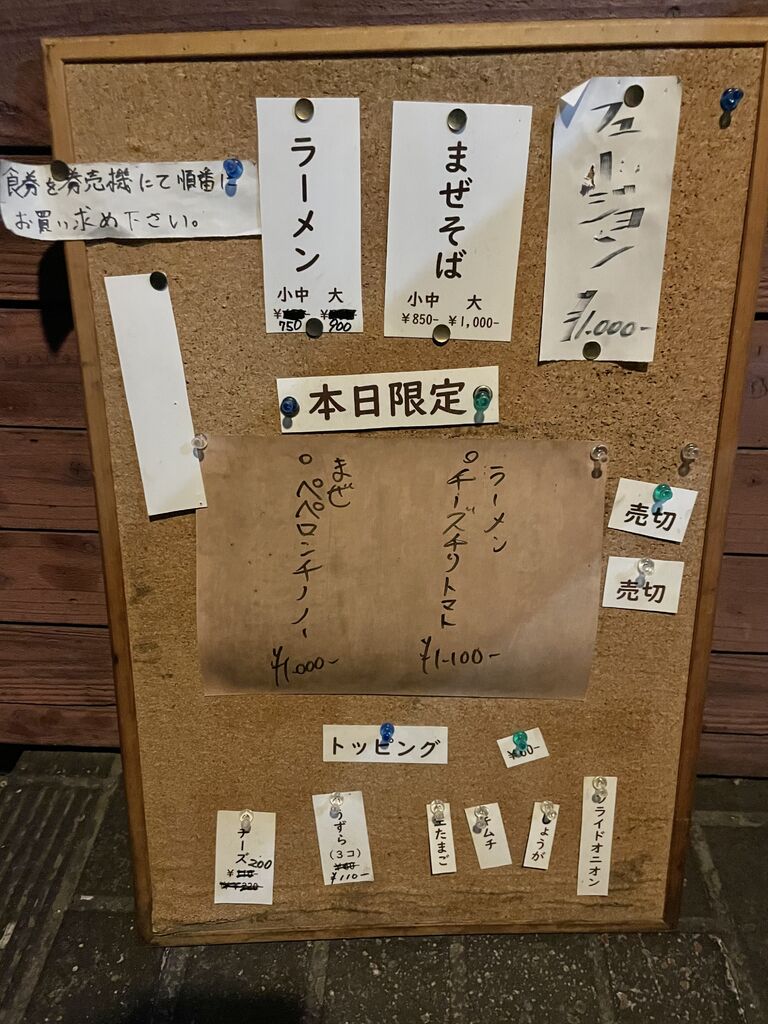 食券を券売機にて順番に
お買い求め下さい。
ラーメン
小中 大
750 900
まぜそば
小中 大
¥850- ¥1,000-
フュージョン
¥1.000-
本日限定
ラーメン
○チーズチリトマト
¥1.100-
まぜ
○ペペロンチーノー
¥1.000-
売切
売切
トッピング
チーズ
200
うずら
(3コ)
¥110-
たまご
ムチ
ょうが
ライドオニオン